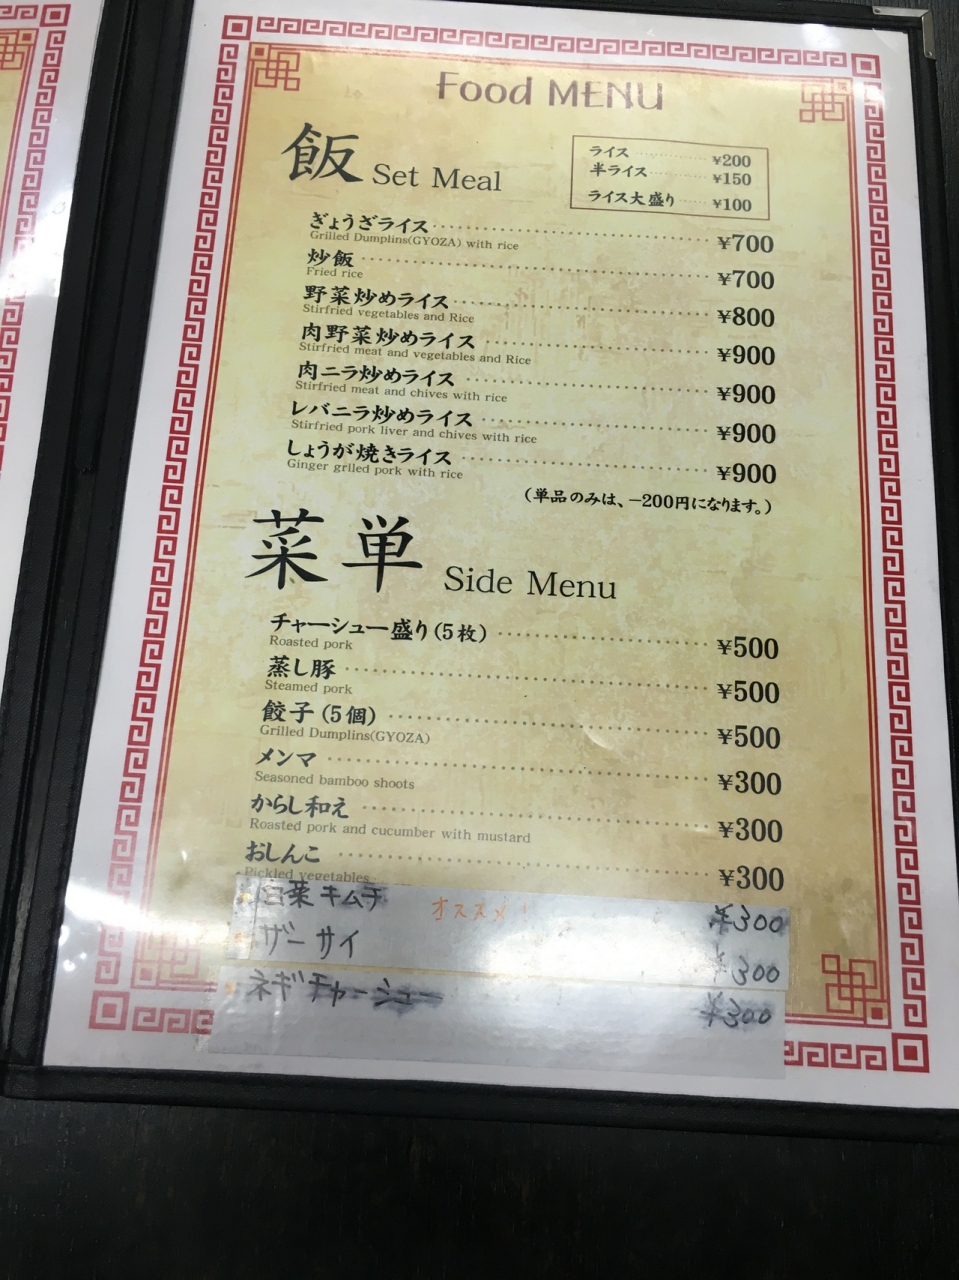 Food MENU
飯 Set Meal
ライス ¥200
半ライス ¥150
ライス大盛り ¥100
ぎょうざライス ¥700
Grilled Dumplins(GYOZA) with rice
炒飯 ¥700
Fried rice
野菜炒めライス ¥800
Stirfried vegetables and Rice
肉野菜炒めライス ¥900
Stirfried meat and vegetables and Rice
肉ニラ炒めライス ¥900
Stirfried meat and chives with rice
レバニラ炒めライス ¥900
Stirfried pork liver and chives with rice
しょうが焼きライス ¥900
Ginger grlled pork with rice
(単品のみは、−200円になります。)
菜単 Side Menu
チャーシュー盛り(5枚) ¥500
Roasted pork
蒸し豚 ¥500
Steamed pork
餃子(5個) ¥500
Grilled Dumplins(GYOZA)
メンマ ¥300
Seasoned bamboo shoots
からし和え ¥300
Roasted pork and cucumber with mustard
おしんこ ¥300
Pickled vegetables
白菜キムチ オススメ! ¥300
ザーサイ ¥300
ネギチャーシュー ¥300